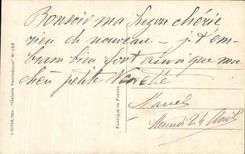 Bonsoir ma Suzon chérie
rien de nouveau - je t'em-
brasse bien fort ainsi que ma
chère petite
Marcel
Mercredi 24 Août
Fabriqué en France